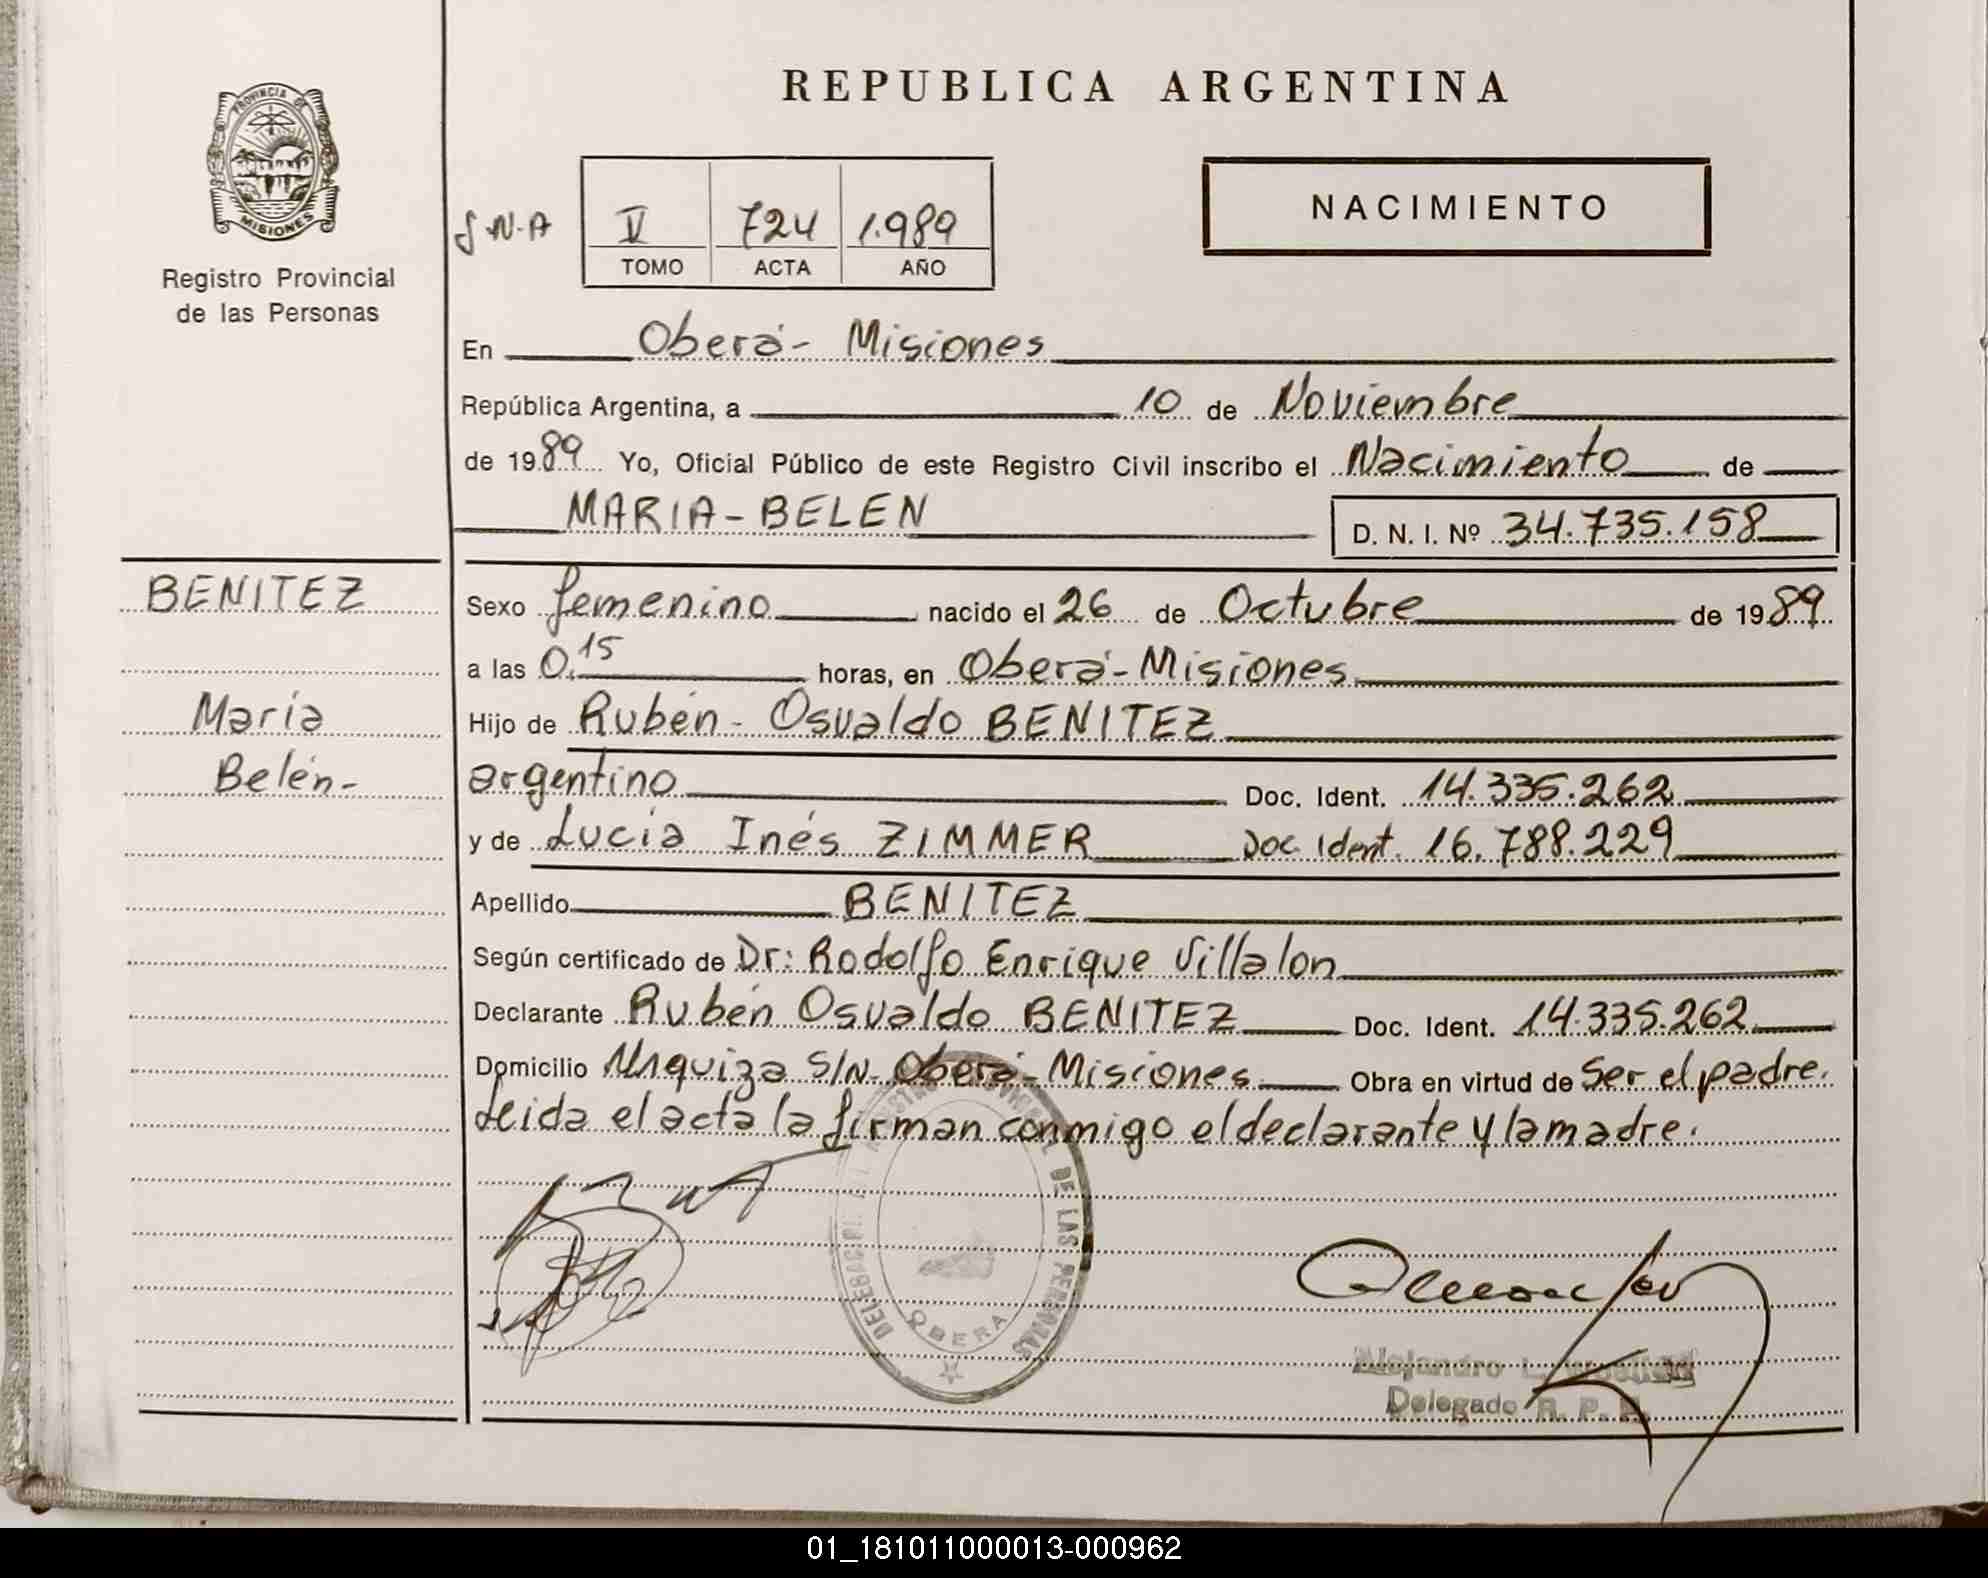 REPUBLICA ARGENTINA
PROVINCIA DE
MISIONES
Registro Provincial
de las Personas
NACIMIENTO
S.N.A
V 724 1.989
TOMO ACTA AÑO
En Oberá- Misiones
República Argentina, a 10 de Noviembre
de 1989 Yo, Oficial Público de este Registro Civil inscribo el Nacimiento de
MARIA-BELEN D. N. I. Nº 34.735.158
BENITEZ
María
Belén-
Sexo femenino nacido el 26 de Octubre de 1989
a las 0.15 horas, en Oberá-Misiones
Hijo de Rubén- Osvaldo BENITEZ
argentino Doc. Ident. 14.335.262
y de Lucía Inés ZIMMER Doc. Ident. 16.788.229
Apellido BENITEZ
Según certificado de Dr: Rodolfo Enrique Villalon
Declarante Rubén Osvaldo BENITEZ Doc. Ident. 14.335.262
Domicilio Urquiza S/N- Oberá-Misiones Obra en virtud de Ser el padre.
Leida el acta la firman conmigo el declarante y la madre.
DE LAS PERSONAS
OBERA
Alejandro L.
Delegado R. P. P.
01_181011000013-000962